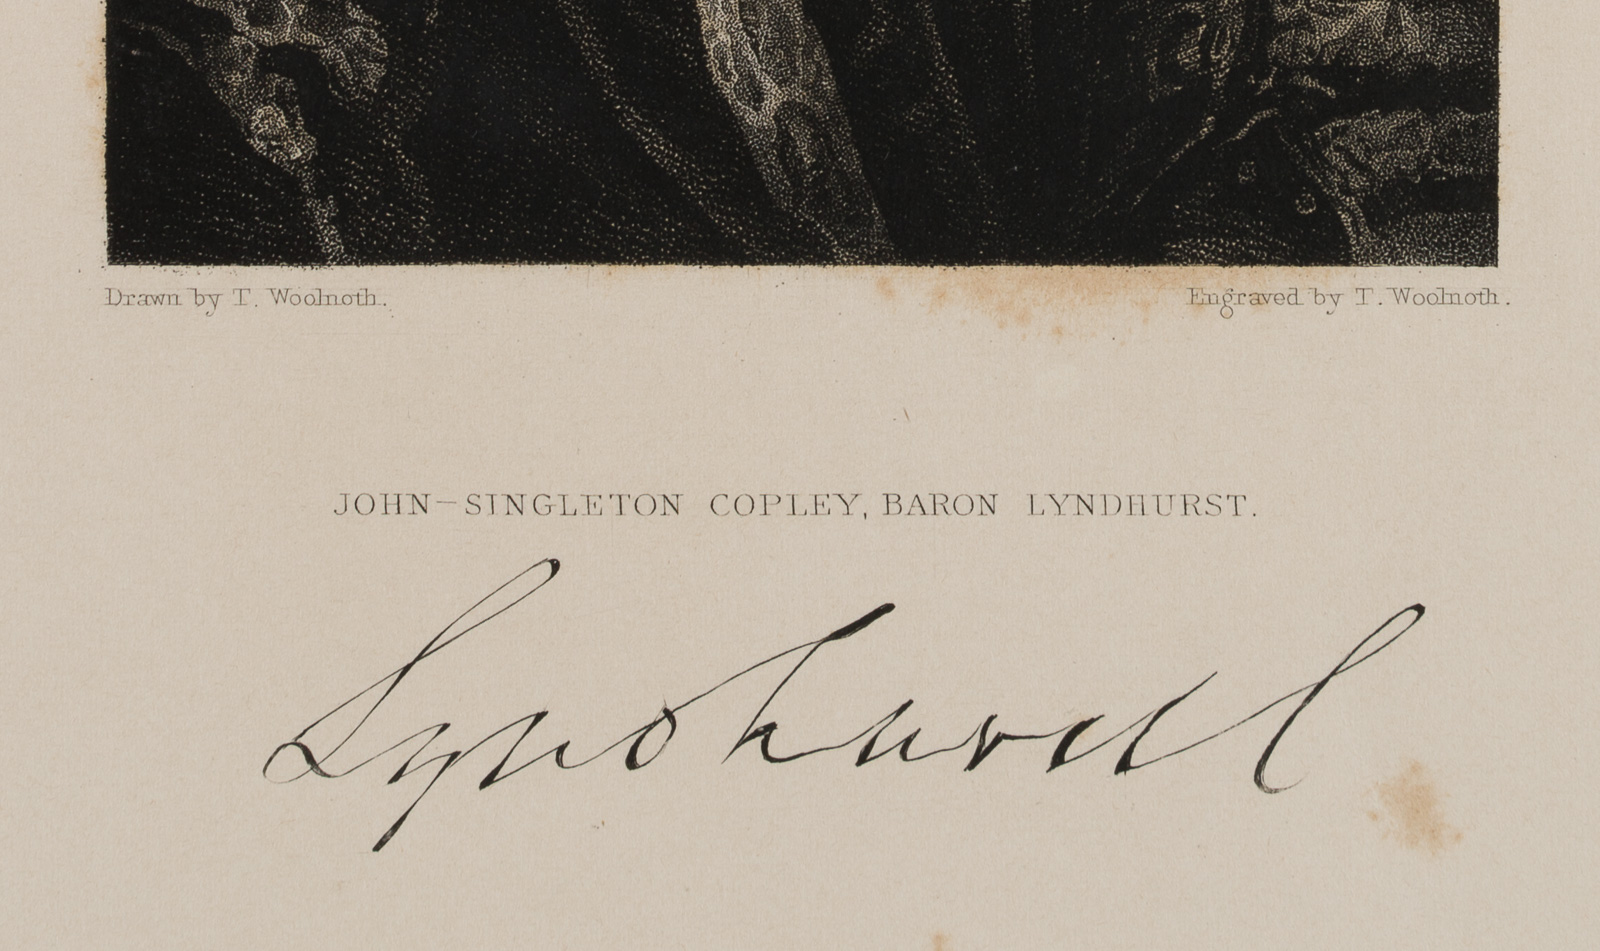 Drawn by T. Woolnoth.
Engraved by T. Woolnoth.
JOHN-SINGLETON COPLEY, BARON LYNDHURST.
Lyndhurst